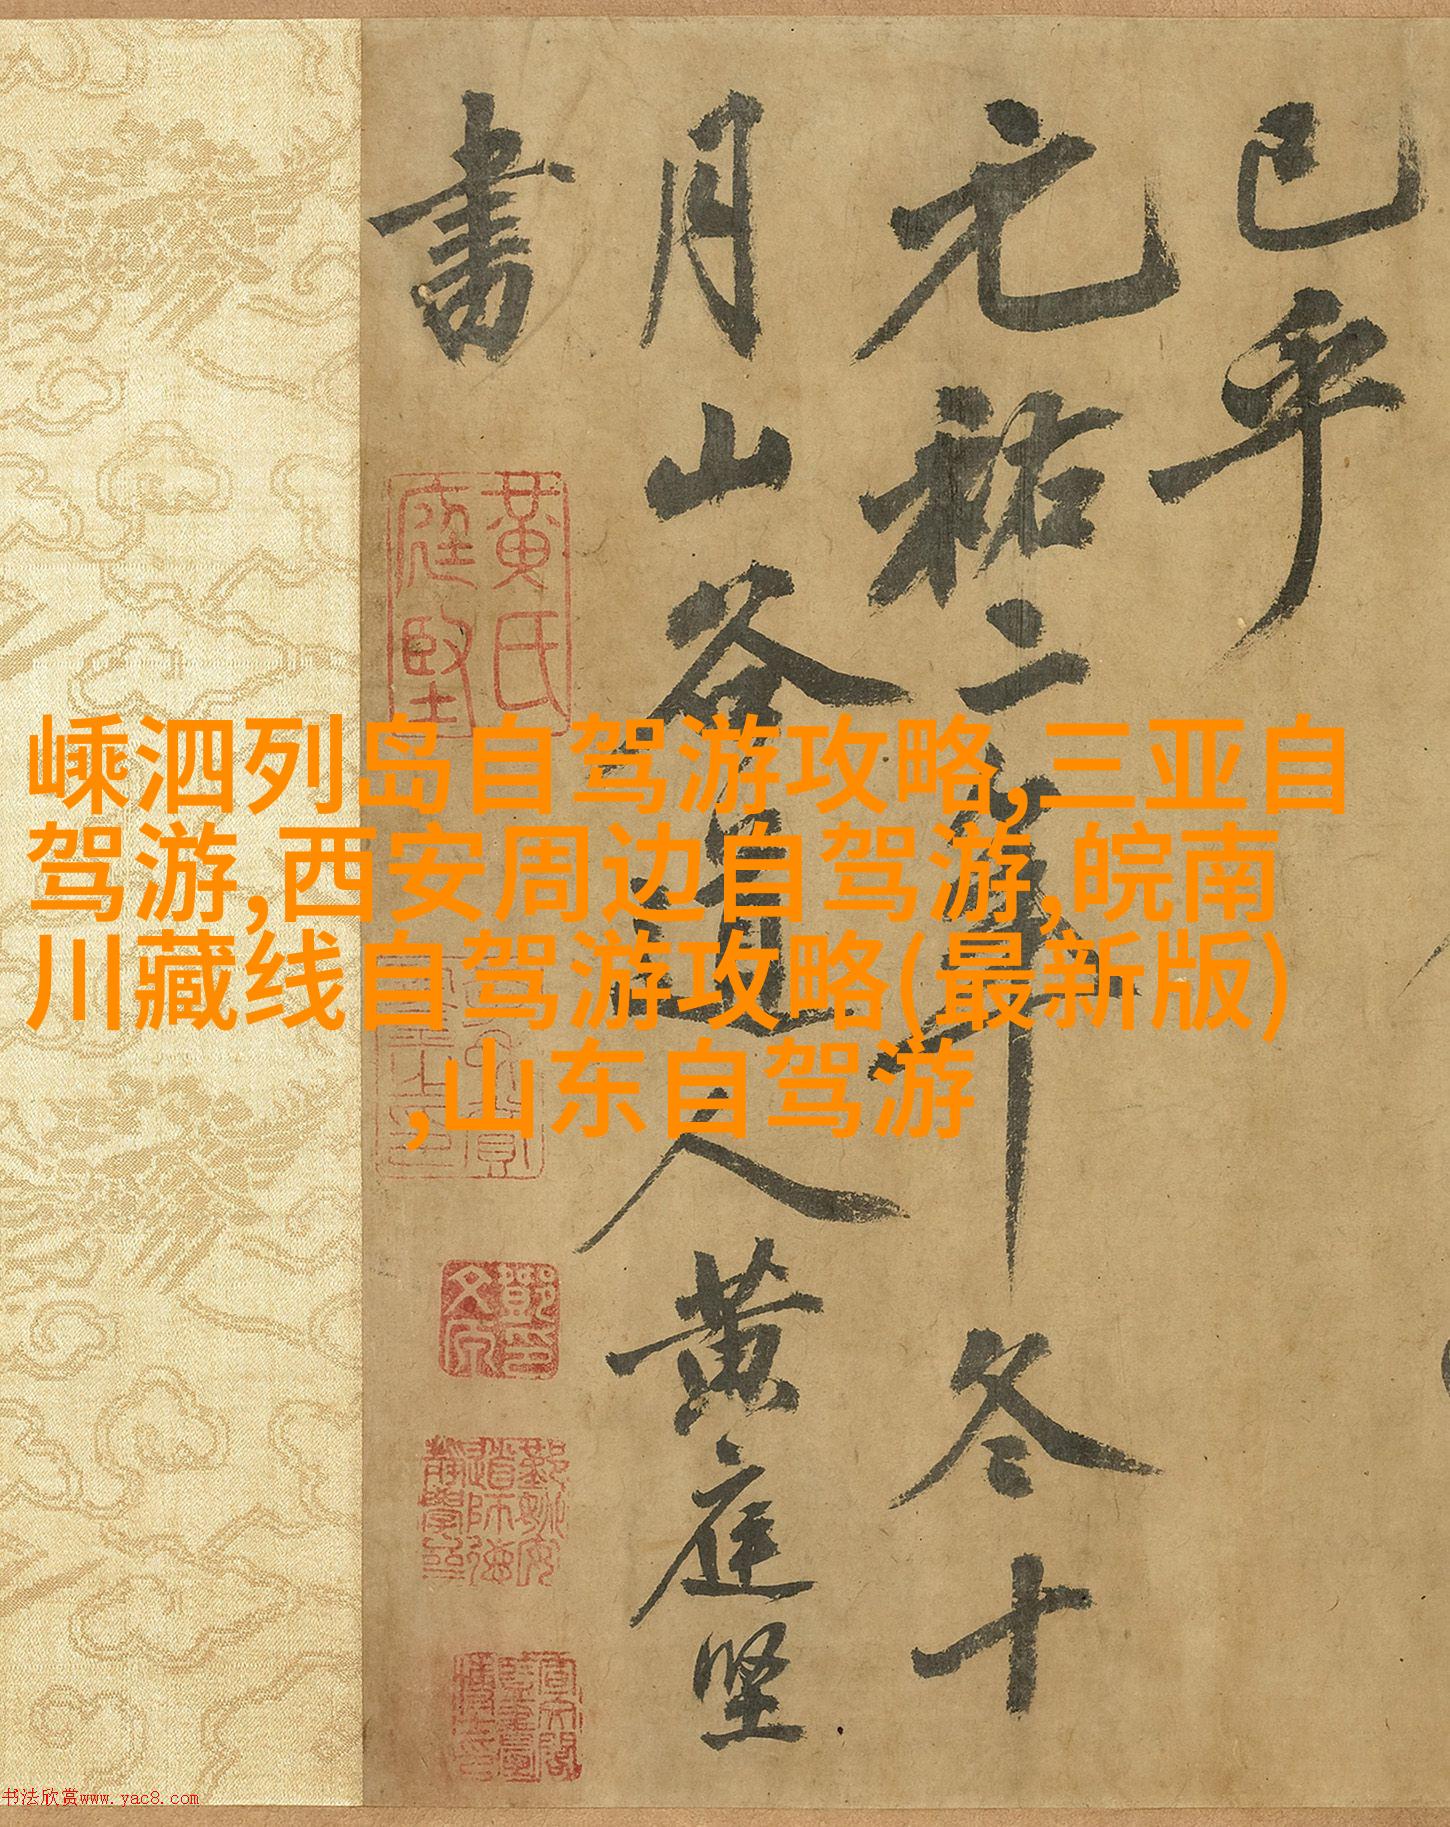 已乎
元祐二年冬十
月山谷道人黄庭坚
書
黄氏
庭堅
嵊泗列岛自驾游攻略,三亚自
驾游,西安周边自驾游,皖南
川藏线自驾游攻略(最新版)
,山东自驾游
书法欣赏www.yac8.com